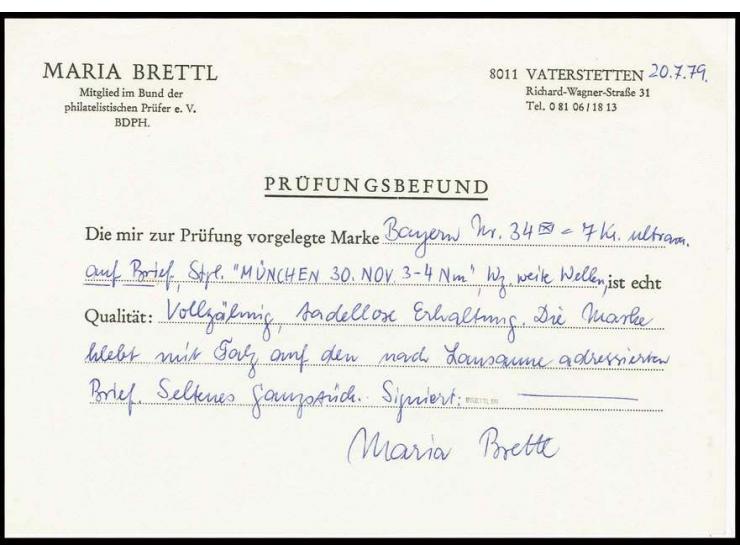 MARIA BRETTL
Mitglied im Bund der
philatelistischen Prüfer e. V.
BDPH.
8011 VATERSTETTEN 20.7.79.
Richard-Wagner-Straße 31
Tel. 0 81 06 / 18 13
PRÜFUNGSBEFUND
Die mir zur Prüfung vorgelegte Marke Bayern Nr. 34 ✉ = 7 Kr. ultram.
auf Brief, Stpl. "MÜNCHEN 30. NOV. 3-4 Nm", Wz. weite Wellen, ist echt
Qualität: Vollzähnig, tadellose Erhaltung. Die Marke
klebt mit Falz auf den nach Lausanne adressierten
Brief. Seltenes Ganzstück. Signiert: BRETTL
Maria Brettl